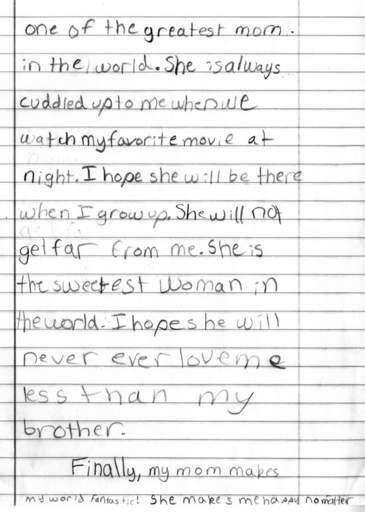 one of the greatest mom.
in the world. She is always
cuddled up to me when we
watch my favorite movie at
night. I hope she will be there
when I grow up. She will not
get far from me. She is
the sweetest woman in
the world. I hope she will
never ever love me
less than my
brother.
Finally, my mom makes
my world fantastic! She makes me happy no matter